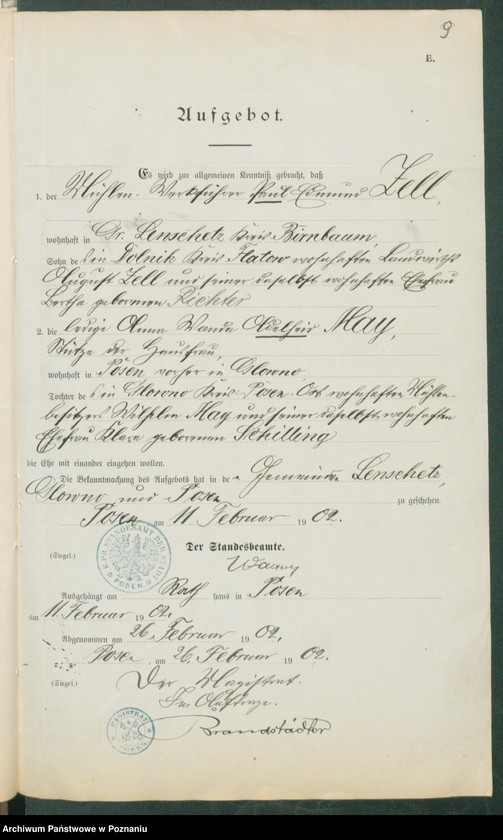 9
E.
Aufgebot.
Es wird zur allgemeinen Kenntniß gebracht, daß
1. der Mühlen-Werkführer Paul Edmund Zell,
wohnhaft in Gr. Lenschetz Kreis Birnbaum,
Sohn des in Dolnik Kreis Flatow wohnhaften Landwirths
August Zell und seiner daselbst wohnhaften Ehefrau
Bertha geborenen Richter
2. die ledige Anna Wanda Adelheid May,
Stütze der Hausfrau,
wohnhaft in Posen, vorher in Glowno,
Tochter des in Glowno Kreis Posen-Ost wohnhaften Mühlen-
besitzers Wilhelm May und seiner daselbst wohnhaften
Ehefrau Klara geborenen Schilling
die Ehe mit einander eingehen wollen.
Die Bekanntmachung des Aufgebots hat in den Gemeinden Lenschetz,
Glowno und Posen zu geschehen.
Posen, am 11. Februar 1902.
(Siegel.) Der Standesbeamte.
POSEN
Ausgehängt am Rath haus in Posen
am 11. Februar 1902.
Abgenommen am 26. Februar 1902.
Posen, am 26. Februar 1902.
(Siegel.) Der Magistrat.
Im Auftrage.
Brandstädter
MAGISTRAT POSEN
Archiwum Państwowe w Poznaniu